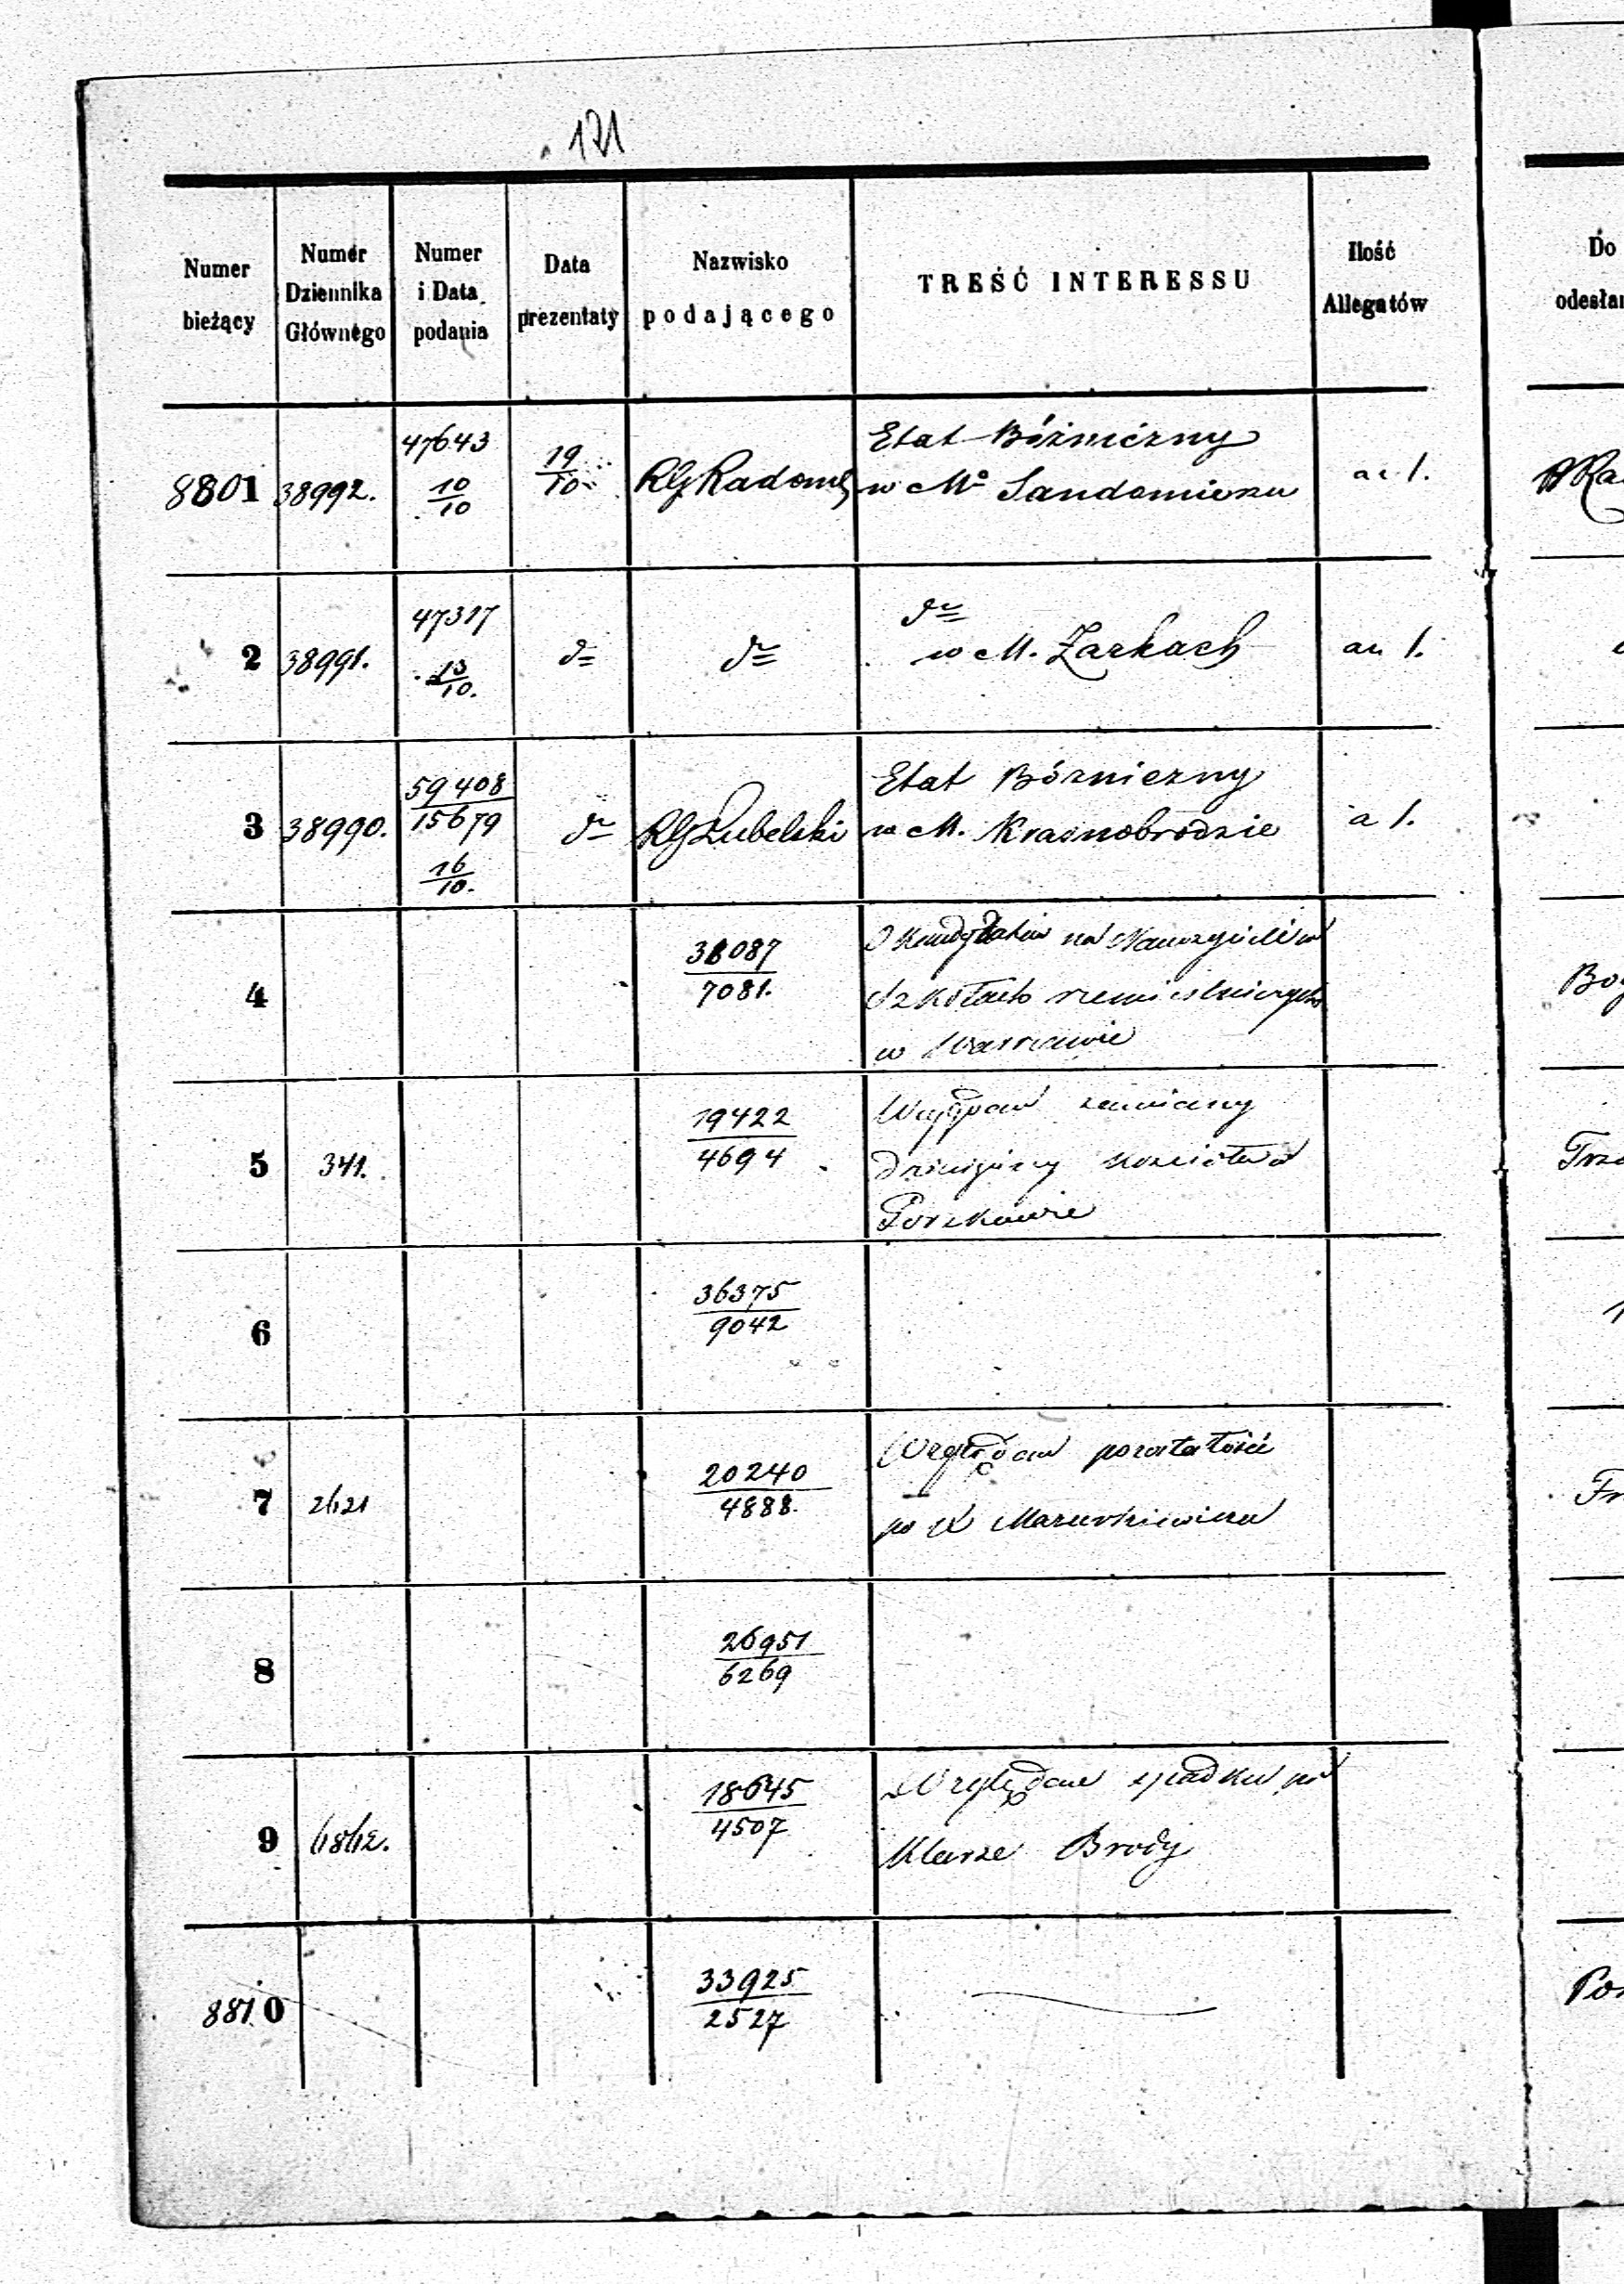 121
Numer bieżący
Numer Dziennika Głównego
Numer i Data podania
Data prezentaty
Nazwisko podającego
TREŚĆ INTERESSU
Ilość Allegatów
Do
odesłan
8801 38992. 47643 10/10 19/10 RG Radoms Etat Bóżniczny
w Mo Sandomierzu
a 1.
2 38991. 47317 13/10. do do do
w M. Żarkach
an 1.
3 38990. 59408/15679 16/10. do RG Lubelski Etat Bóżniczny
w M. Krasnobrodzie
a 1.
4 38087/7081. O Kandydatów na Nauczycieli w
Szkołach rzemieślniczych
w Warszawie
Bog
5 341. 19422/4694 zamiany
dziesięciny Kościoła w
Gorzkowie
6 36375/9042
7 2621 20240/4888. Względem pozostałości
po X Mazurkiewiczu
Fr
8 26951/6269
9 6862. 18645/4507 Względem spadku po
Klarze Brody
8810 33925/2527